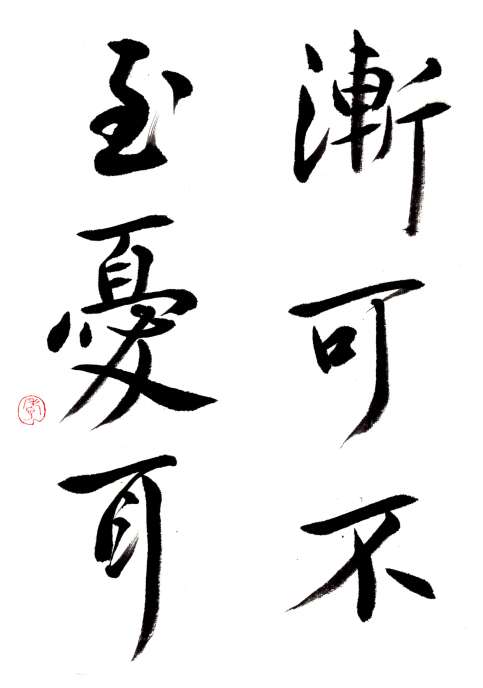 漸可不
至憂耳